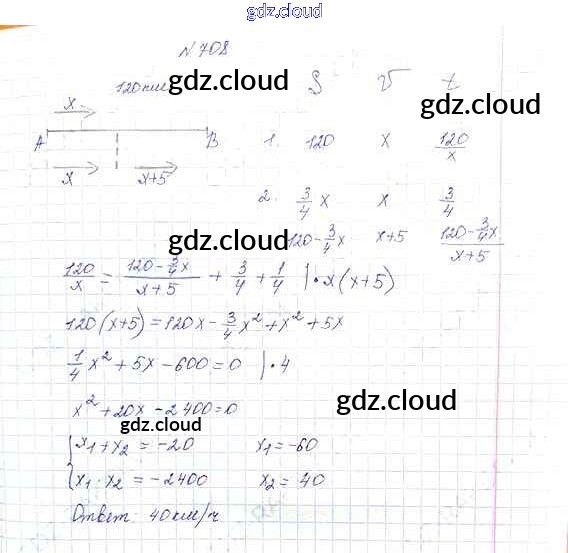 gdz.cloud
N 708
120 км gdz.cloud S V t
x
A B 1. 120 x 120/x
x x+5
2. 3/4 x x 3/4
gdz.cloud 120-3/4x x+5 (120-3/4x)/(x+5)
120/x = (120-3/4x)/(x+5) + 3/4 + 1/4 |·x(x+5)
gdz.cloud
120(x+5)=120x-3/4x²+x²+5x
1/4x²+5x-600=0 |·4
x²+20x-2400=0 gdz.cloud
gdz.cloud
{x₁+x₂=-20 x₁=-60
x₁·x₂=-2400 x₂=40
Ответ: 40 км/ч
gdz.cloud